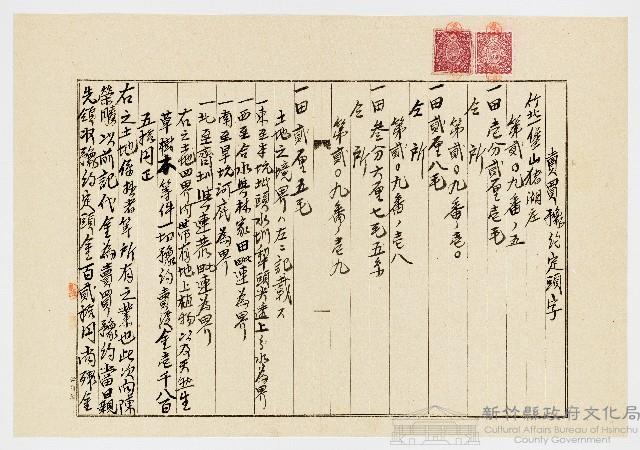 賣買豫約定頭字
竹北堡山猪湖庄
第貳〇九番ノ五
一田壹分貳厘壹毛
仝所
第貳〇九番ノ壱〇
一田貳厘八毛
仝所
第貳〇九番ノ壱八
一田叁分六厘七毛五糸
仝所
第貳〇九番ノ壱九
一田貳厘五毛
土地之境界ハ左ニ記載ス
一東至半坑坡頭水圳 頭 透上分水為界
一西至合水與林家田毗連為界
一南至旱坑河底為界
一北至齊圳與連 毗連為界
右之土地四界內世帶於地上植物以及天然生
草樹木等件一切豫約賣渡金壱千八百
五拾円正
右之土地係 者等所有之業也此次向陳
榮 以前記代金為賣買豫約當日親
先領收豫約定頭金百貳拾円尚殘金
新竹縣政府文化局
Cultural Affairs Bureau of Hsinchu
County Government